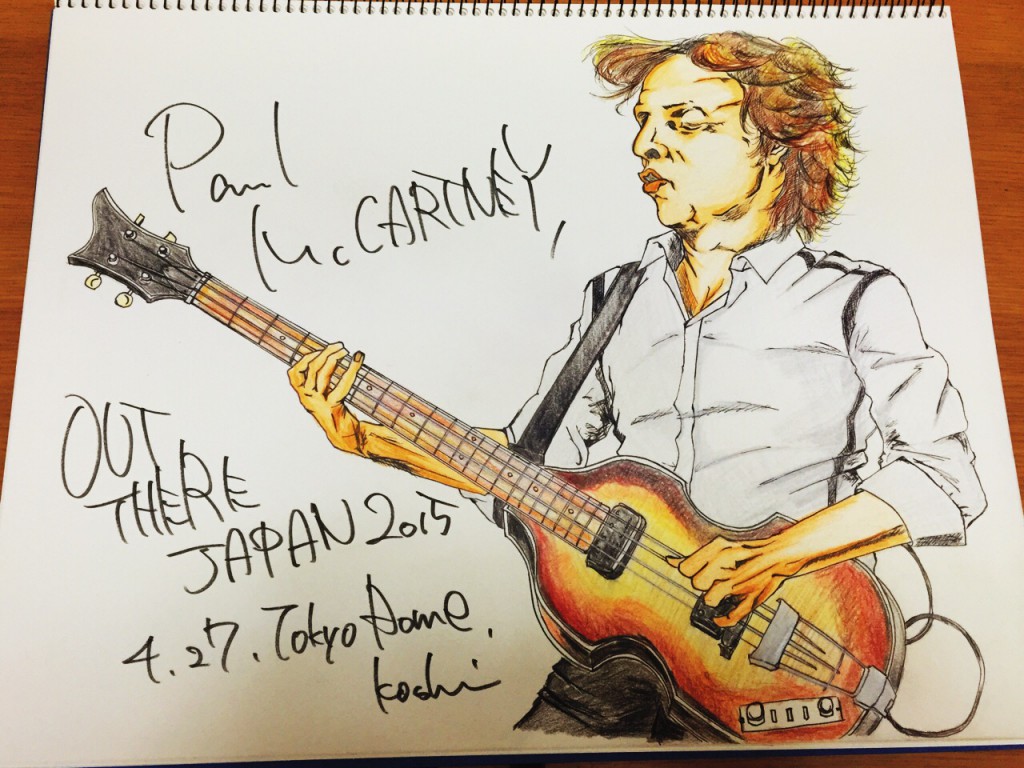 Paul
McCARTNEY,
OUT
THERE
JAPAN 2015
4.27. Tokyo Dome.
koshi